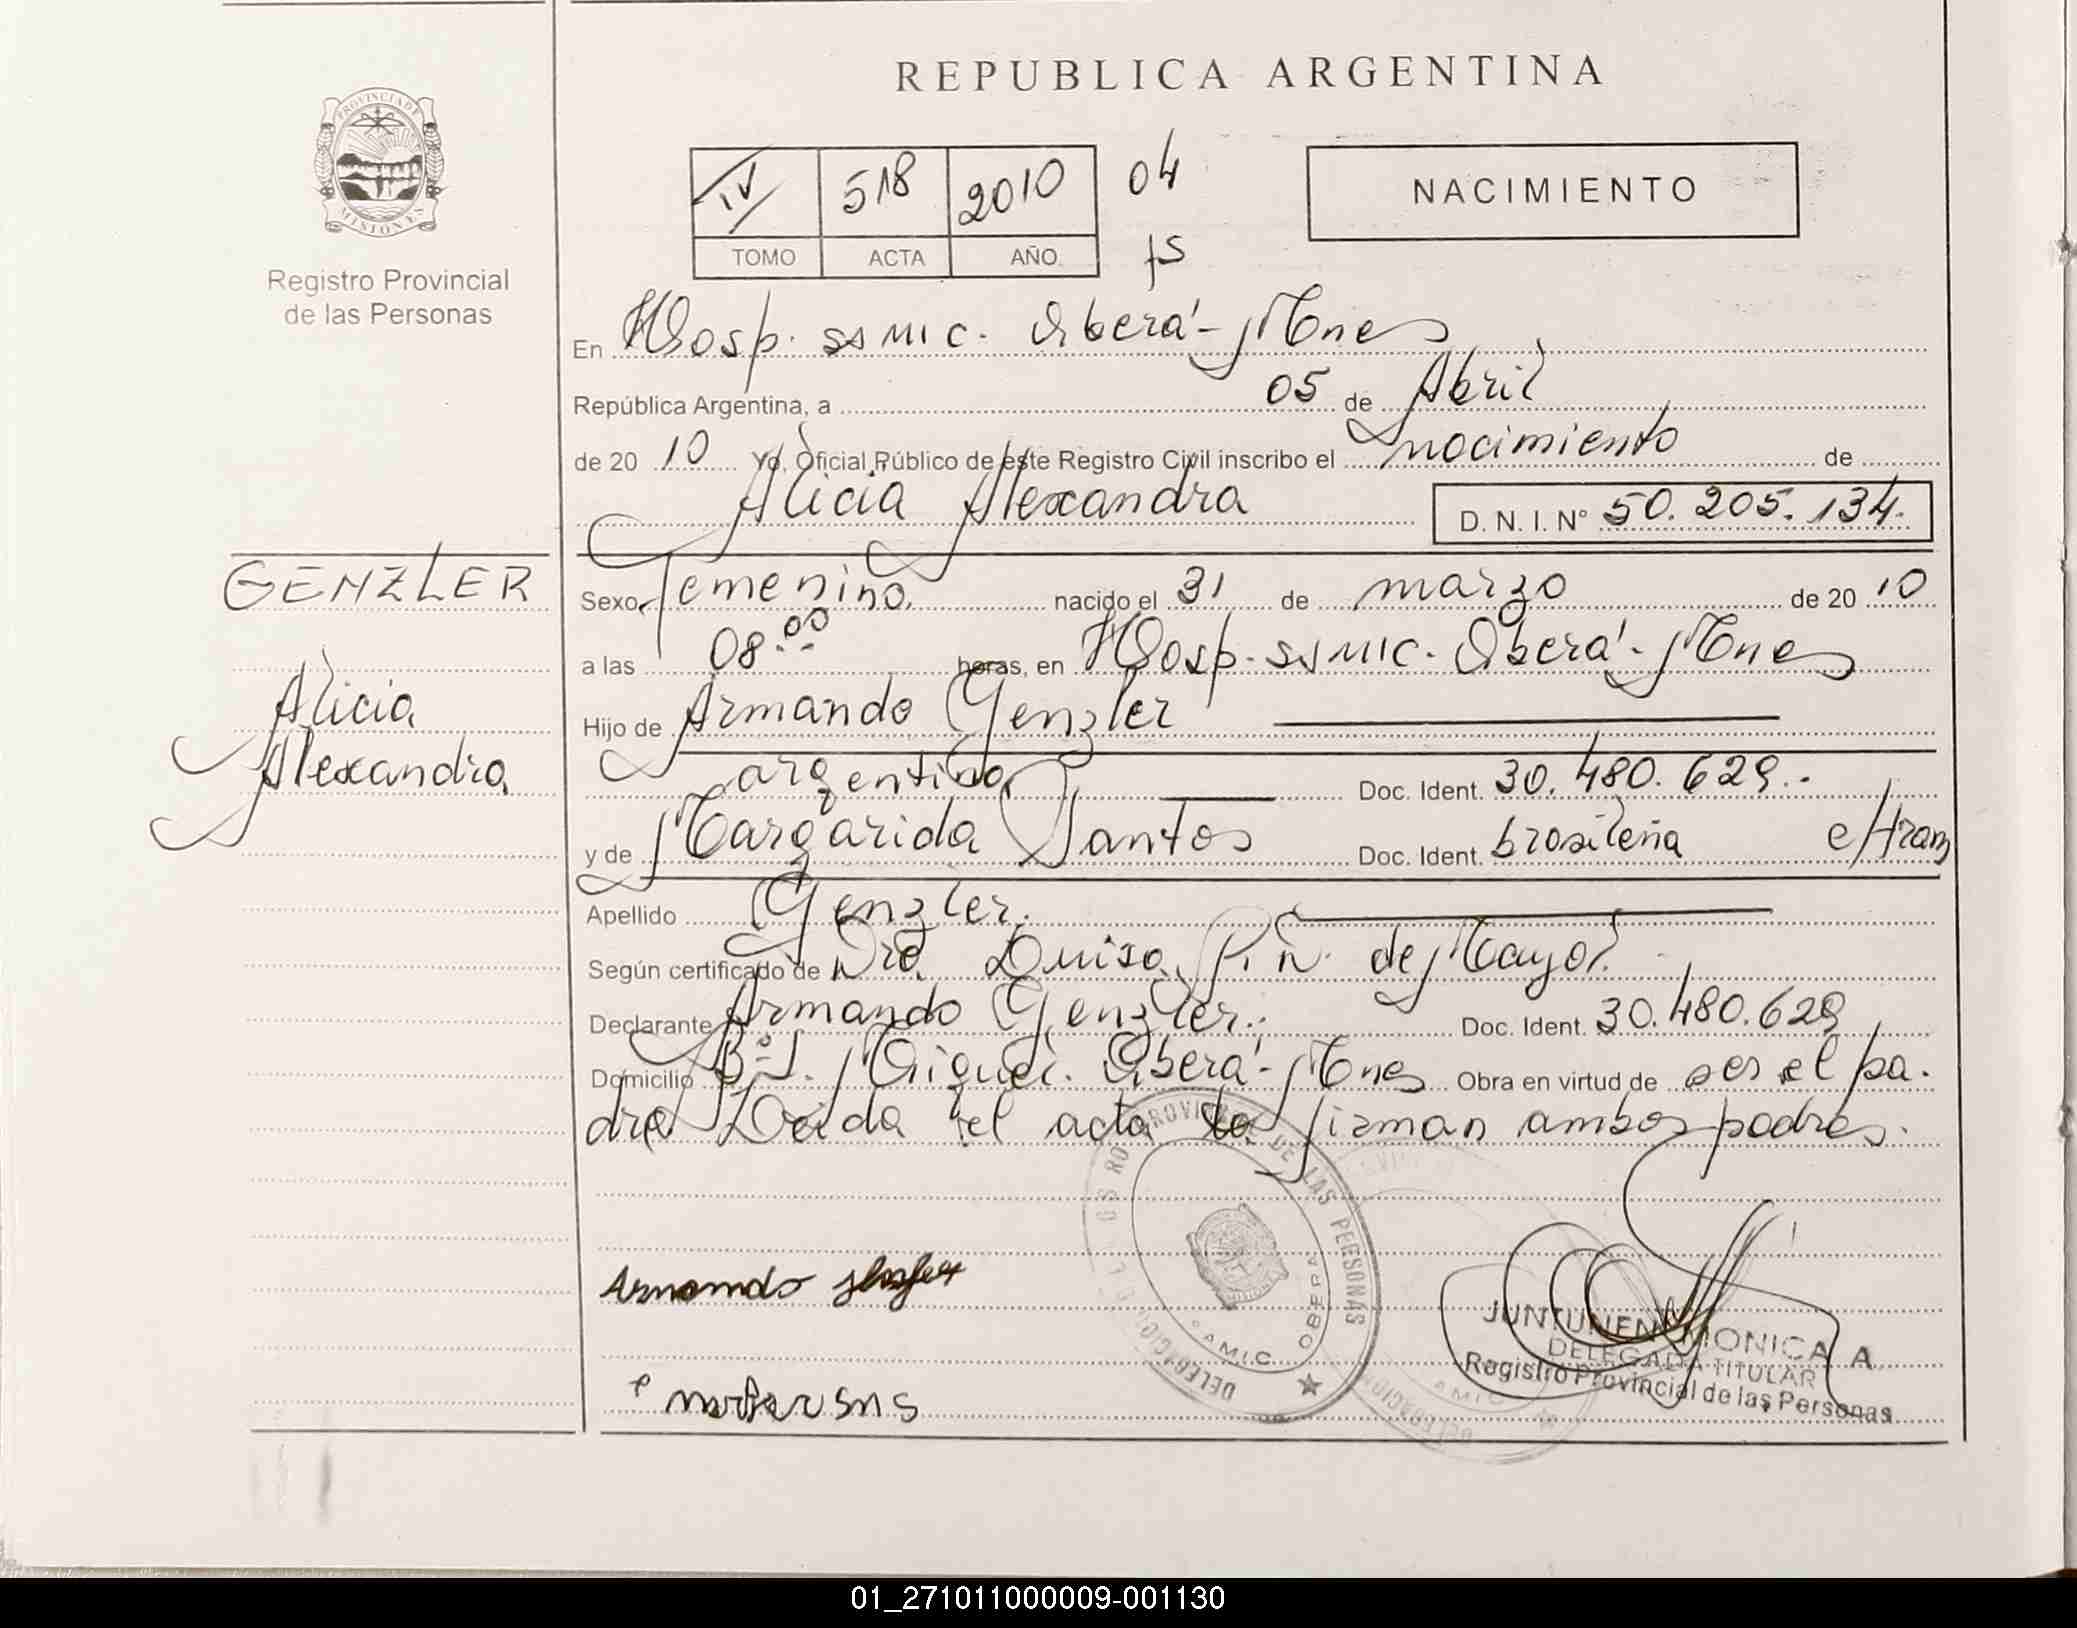 REPUBLICA ARGENTINA
PROVINCIA DE
MISIONES
Registro Provincial
de las Personas
IV 518 2010 04
TOMO ACTA AÑO fs
NACIMIENTO
En Hosp. ssmic. Oberá - Mnes
República Argentina, a 05 de Abril
de 20 10 Yo, Oficial Público de este Registro Civil inscribo el nacimiento de
Alicia Alexandra D. N. I. N° 50.205.134.
GENZLER
Alicia
Alexandra
Sexo Femenino. nacido el 31 de marzo de 20 10
a las 08:00 horas, en Hosp. ssmic. Oberá - Mnes
Hijo de Armando Genzler
argentino Doc. Ident. 30.480.629.-
y de Margarida Santos Doc. Ident. brasileña
Apellido Genzler.
Según certificado de Dra. Luisa de Mayol.
Declarante Armando Genzler.. Doc. Ident. 30.480.629
Domicilio B° S. Miguel. Oberá - Mnes Obra en virtud de ser el pa-
dre Leida el acta la firman ambos padres.
PROVINCIAL DE LAS PERSONAS
OBERA
Armando
JUNTUNEN MONICA A
DELEGADA TITULAR
Registro Provincial de las Personas
01_271011000009-001130